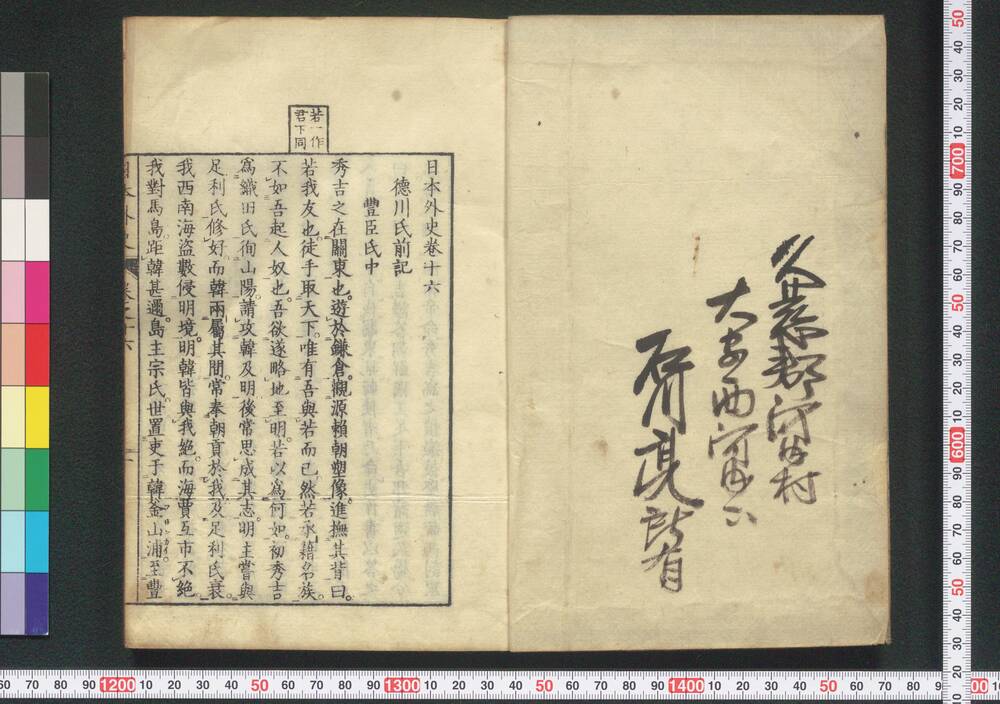 久慈郡守田村
大字西
石川亮
所有
若一作
君下同
日本外史卷十六
德川氏前記
豐臣氏中
秀吉之在關東也。遊於鎌倉。觀源賴朝塑像。進撫其背曰。
若我友也。徒手取天下。唯有吾與若而已。然若承藉名族。
不如吾起人奴也。吾欲遂略地至明。若以爲何如。初秀吉
爲織田氏徇山陽。請攻韓及明。後常思成其志。明主嘗與
足利氏修好。而韓兩屬其間。常奉朝貢於我。及足利氏衰。
我西南海盜數侵明境。明韓皆與我絕。而海賈互市不絕
我對馬島距韓甚邇。島主宗氏世置吏于韓釜山浦。至豐
日本外史 卷之十六